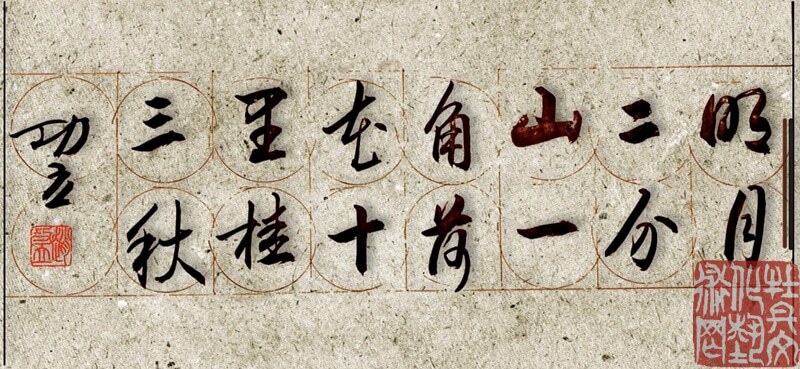 明月
二分
山一
角荷
花十
里桂
三秋